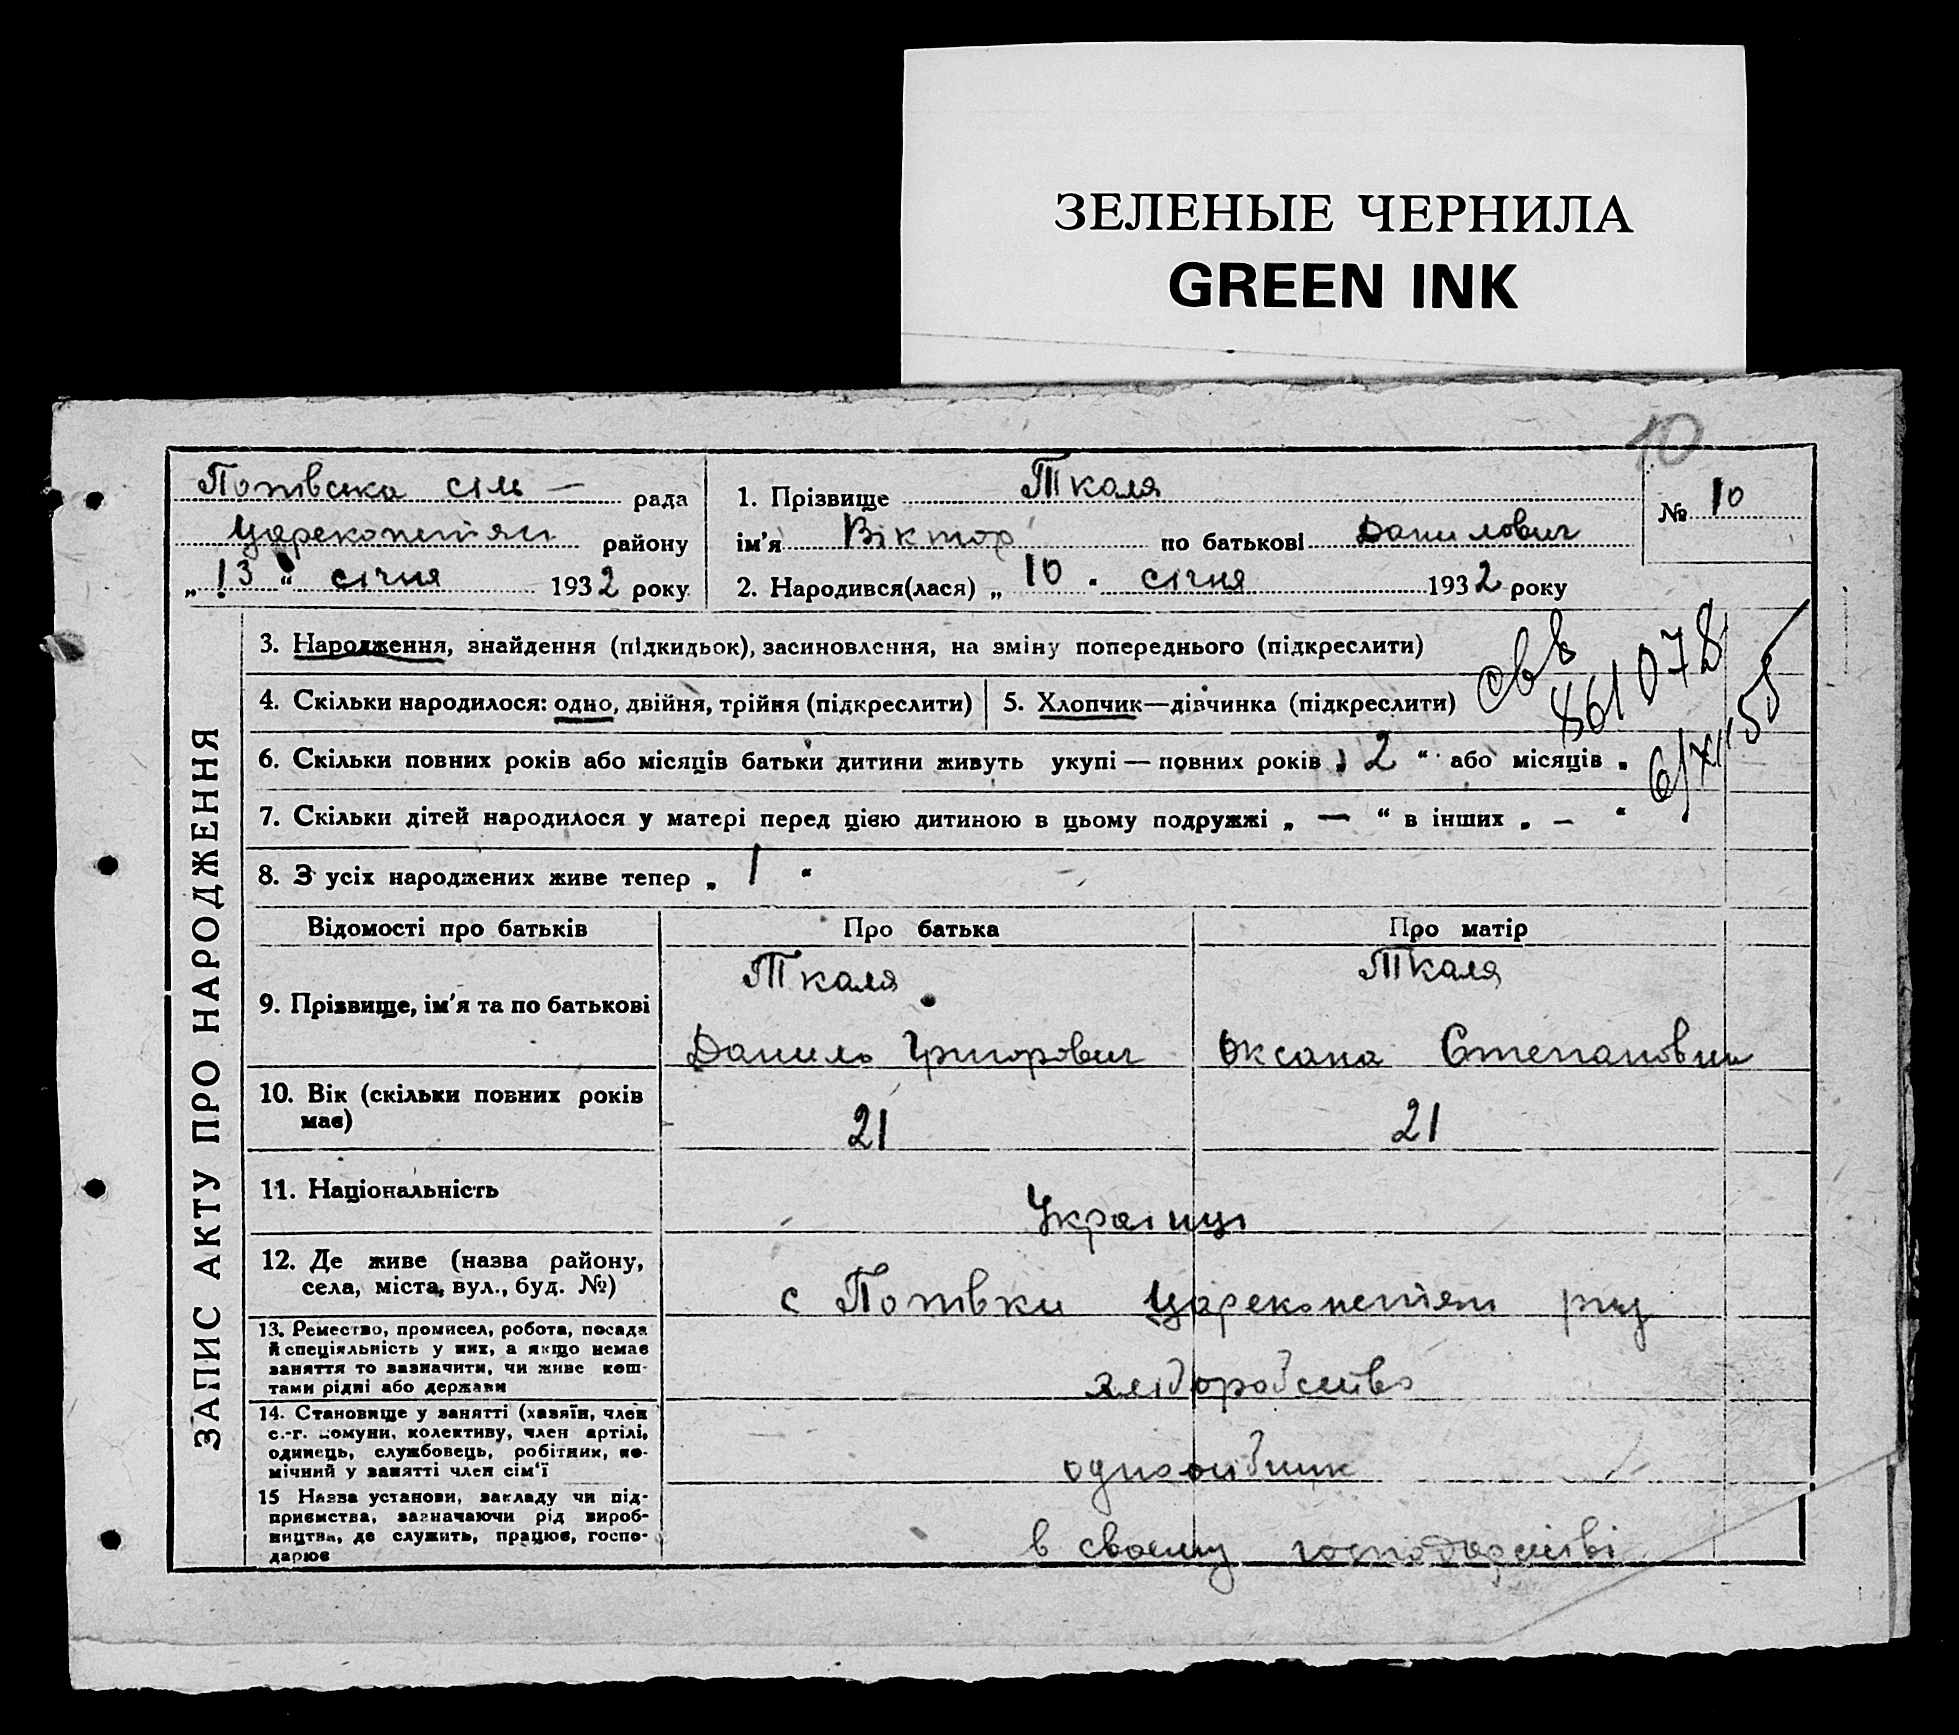 ЗЕЛЕНЫЕ ЧЕРНИЛА
GREEN INK
10
Попівська сіль — рада
Царекон­стян району
„ 13 “ січня 1932 року
1. Прізвище Ткаля
ім'я Віктор по батькові Данилович
№ 10
2. Народився(лася) „ 10 . січня 1932 року
ЗАПИС АКТУ ПРО НАРОДЖЕННЯ
3. Народження, знайдення (підкидьок), засиновлення, на зміну попереднього (підкреслити)
4. Скільки народилося: одно, двійня, трійня (підкреслити)
5. Хлопчик—дівчинка (підкреслити)
861078
6/XI 55
6. Скільки повних років або місяців батьки дитини живуть укупі — повних років „ 2 “ або місяців „
7. Скільки дітей народилося у матері перед цією дитиною в цьому подружжі „ — “ в інших „ — “
8. З усіх народжених живе тепер „ 1 “
Відомості про батьків
Про батька
Про матір
9. Прізвище, ім'я та по батькові
Ткаля
Данило Григорович
Ткаля
Оксана Степановни
10. Вік (скільки повних років
має)
21
21
11. Національність
Українці
12. Де живе (назва району,
села, міста, вул., буд. №)
с Попівки
13. Ремество, промисел, робота, посада
й спеціяльність у них, а якщо немає
заняття то зазначити, чи живе кош-
тами рідні або держави
хліборобство
14. Становище у занятті (хазяїн, член
с.-г. комуни, колективу, член артілі,
одинець, службовець, робітник, по-
мічний у занятті член сім'ї
одноосібник
15 Назва установи, закладу чи під-
приємства, зазначаючи рід вироб-
ництва, де служить, працює, госпо-
дарює
в своему господарстві